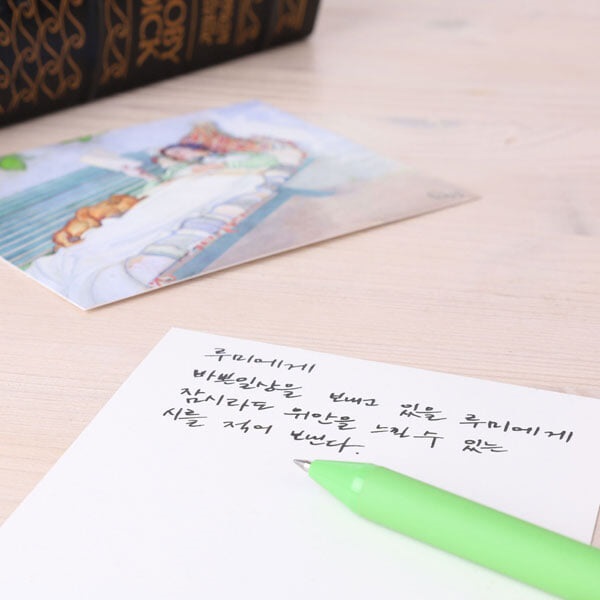 OBY
DICK
루미에게
바쁜일상을 보내고 있을 루미에게
잠시라도 위안을 느낄 수 있는
시를 적어 보낸다.